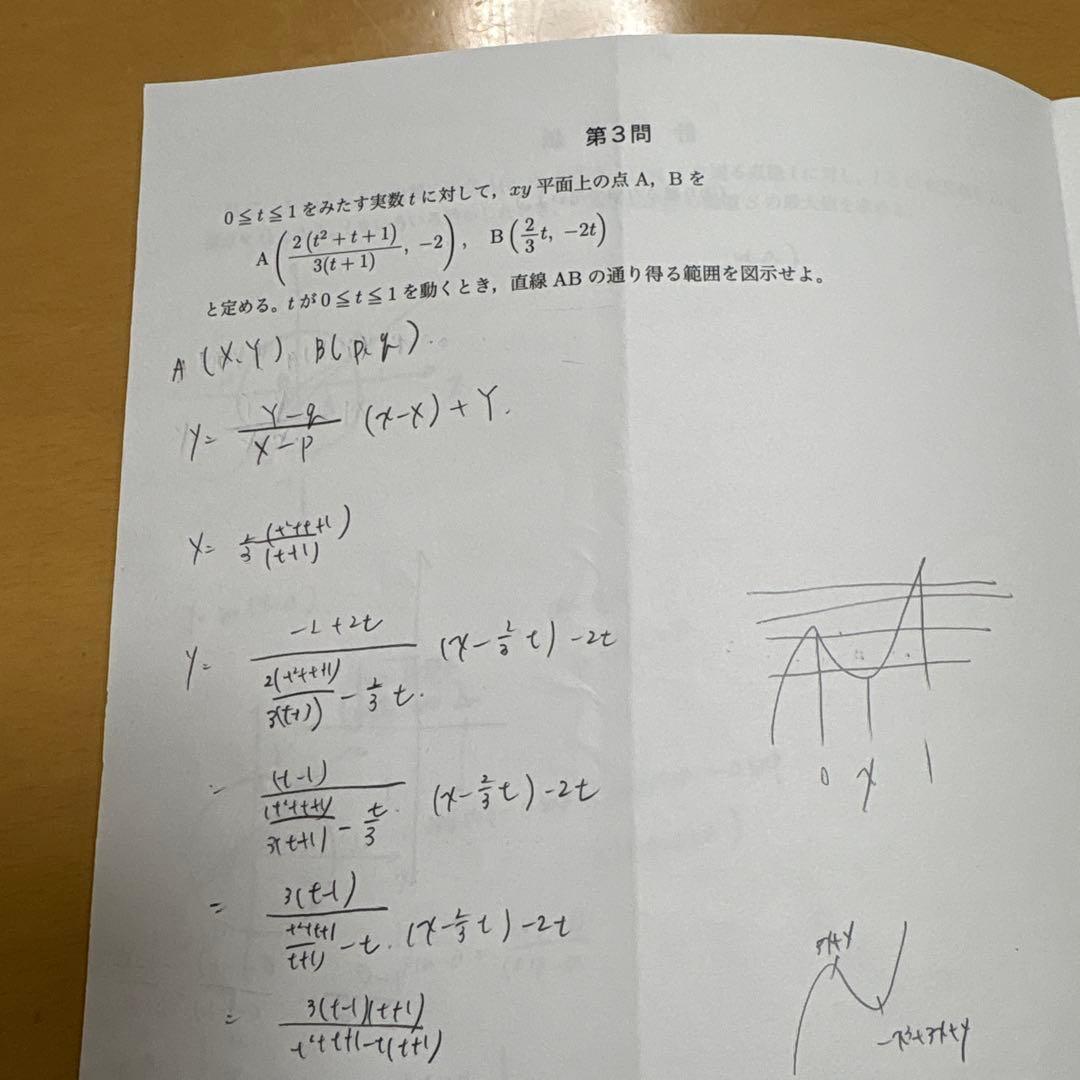 第3問
0≦t≦1をみたす実数tに対して，xy平面上の点A，Bを
A(2(t²+t+1)/3(t+1), −2)，B(2/3 t, −2t)
と定める。tが0≦t≦1を動くとき，直線ABの通り得る範囲を図示せよ。
A (X, Y) B(p, q).
y= (Y-q)/(X-p) (x-X)+Y.
X= 2/3 (t²+t+1)/(t+1)
y= (-2+2t)/(2(t²+t+1)/3(t+1) - 2/3 t) (x-2/3 t)-2t
= (t-1)/((t²+t+1)/3(t+1) - t/3) (x-2/3 t)-2t
= 3(t-1)/((t²+t+1)/(t+1) - t) (x-2/3 t)-2t
= 3(t-1)(t+1)/(t²+t+1-t(t+1))
0 x 1
3x+y
-x³+3x+y